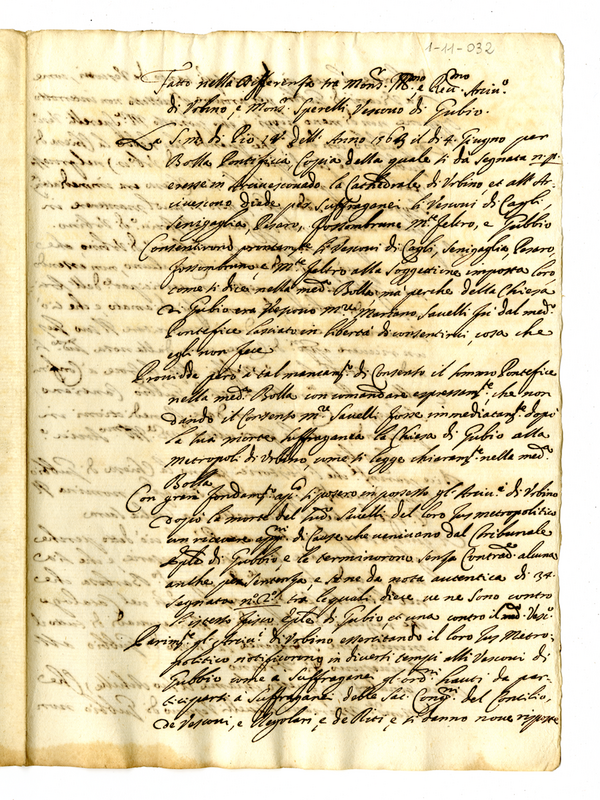 1-11-032
Fatto nella Differenza trà Mons.r Ill.mo e Rev.mo Arciv.o
di Urbino, e Mons.r Sperelli Vescovo di Gubio.
La S. M. di Pio 4.o dell'Anno 1563 il dì 4. Giugno per
Bolla Pontificia, Copia della quale si dà Segnata n.o p.o
eresse in Arcivescovado la Cathedrale di Urbino et all'Ar-
civescovo diede per suffraganei li Vescovi di Cagli,
Senigaglia, Pesaro, Fossombrone M.te Feltro, e Gubbio
Consentirono prontam.te li Vescovi di Cagli, Senigaglia Pesaro
Fossombrone e M.te Feltro alla Soggettione imposta loro
come si dice nella med.a Bolla, mà perche della Chiesa
di Gubio era Vescovo M.r Mariano Savelli fù dal med.o
Pontefice lasciato in libertà di consentirvi, cosa che
egli non fece
Providde però à tal mancam.to di Consenso il sommo Pontefice
nella med.a Bolla con comandare espressam.te, che non
dando il Consenso M.r Savelli fosse immediatam.te dopò
la sua morte suffraganea la Chiesa di Gubio alla
Metropoli di Urbino, come si legge chiaram.te nella med.a
Bolla
Con gran fondam.to si posero in possesso gl'Arciv.i di Urbino
dopo la morte del Savelli del loro Jus metropolitico
con ricevere app.ni di Cause che venivano dal Tribunale
Ep.le di Gubbio e le terminorono senza Contrad.e alcuna
anche per Sentenza e sene dà nota autentica di 34
Segnata n.o 2.o trà lequali dieci ve ne sono contro
fisco Ep.le di Gubio et una contro il Vesc.o
Parim.te gl'Arciv.i di Urbino essercitando il loro Jus Metro-
politico notificorono in diversi tempi alli Vescovi di
Gubbio come a Suffraganei gl'ord.ni havuti da par-
teciparsi a Suffraganei dalle Sac. Cong.ni del Concilio,
de Vescovi, e Regolari, e de Riti, e si danno nove risposte